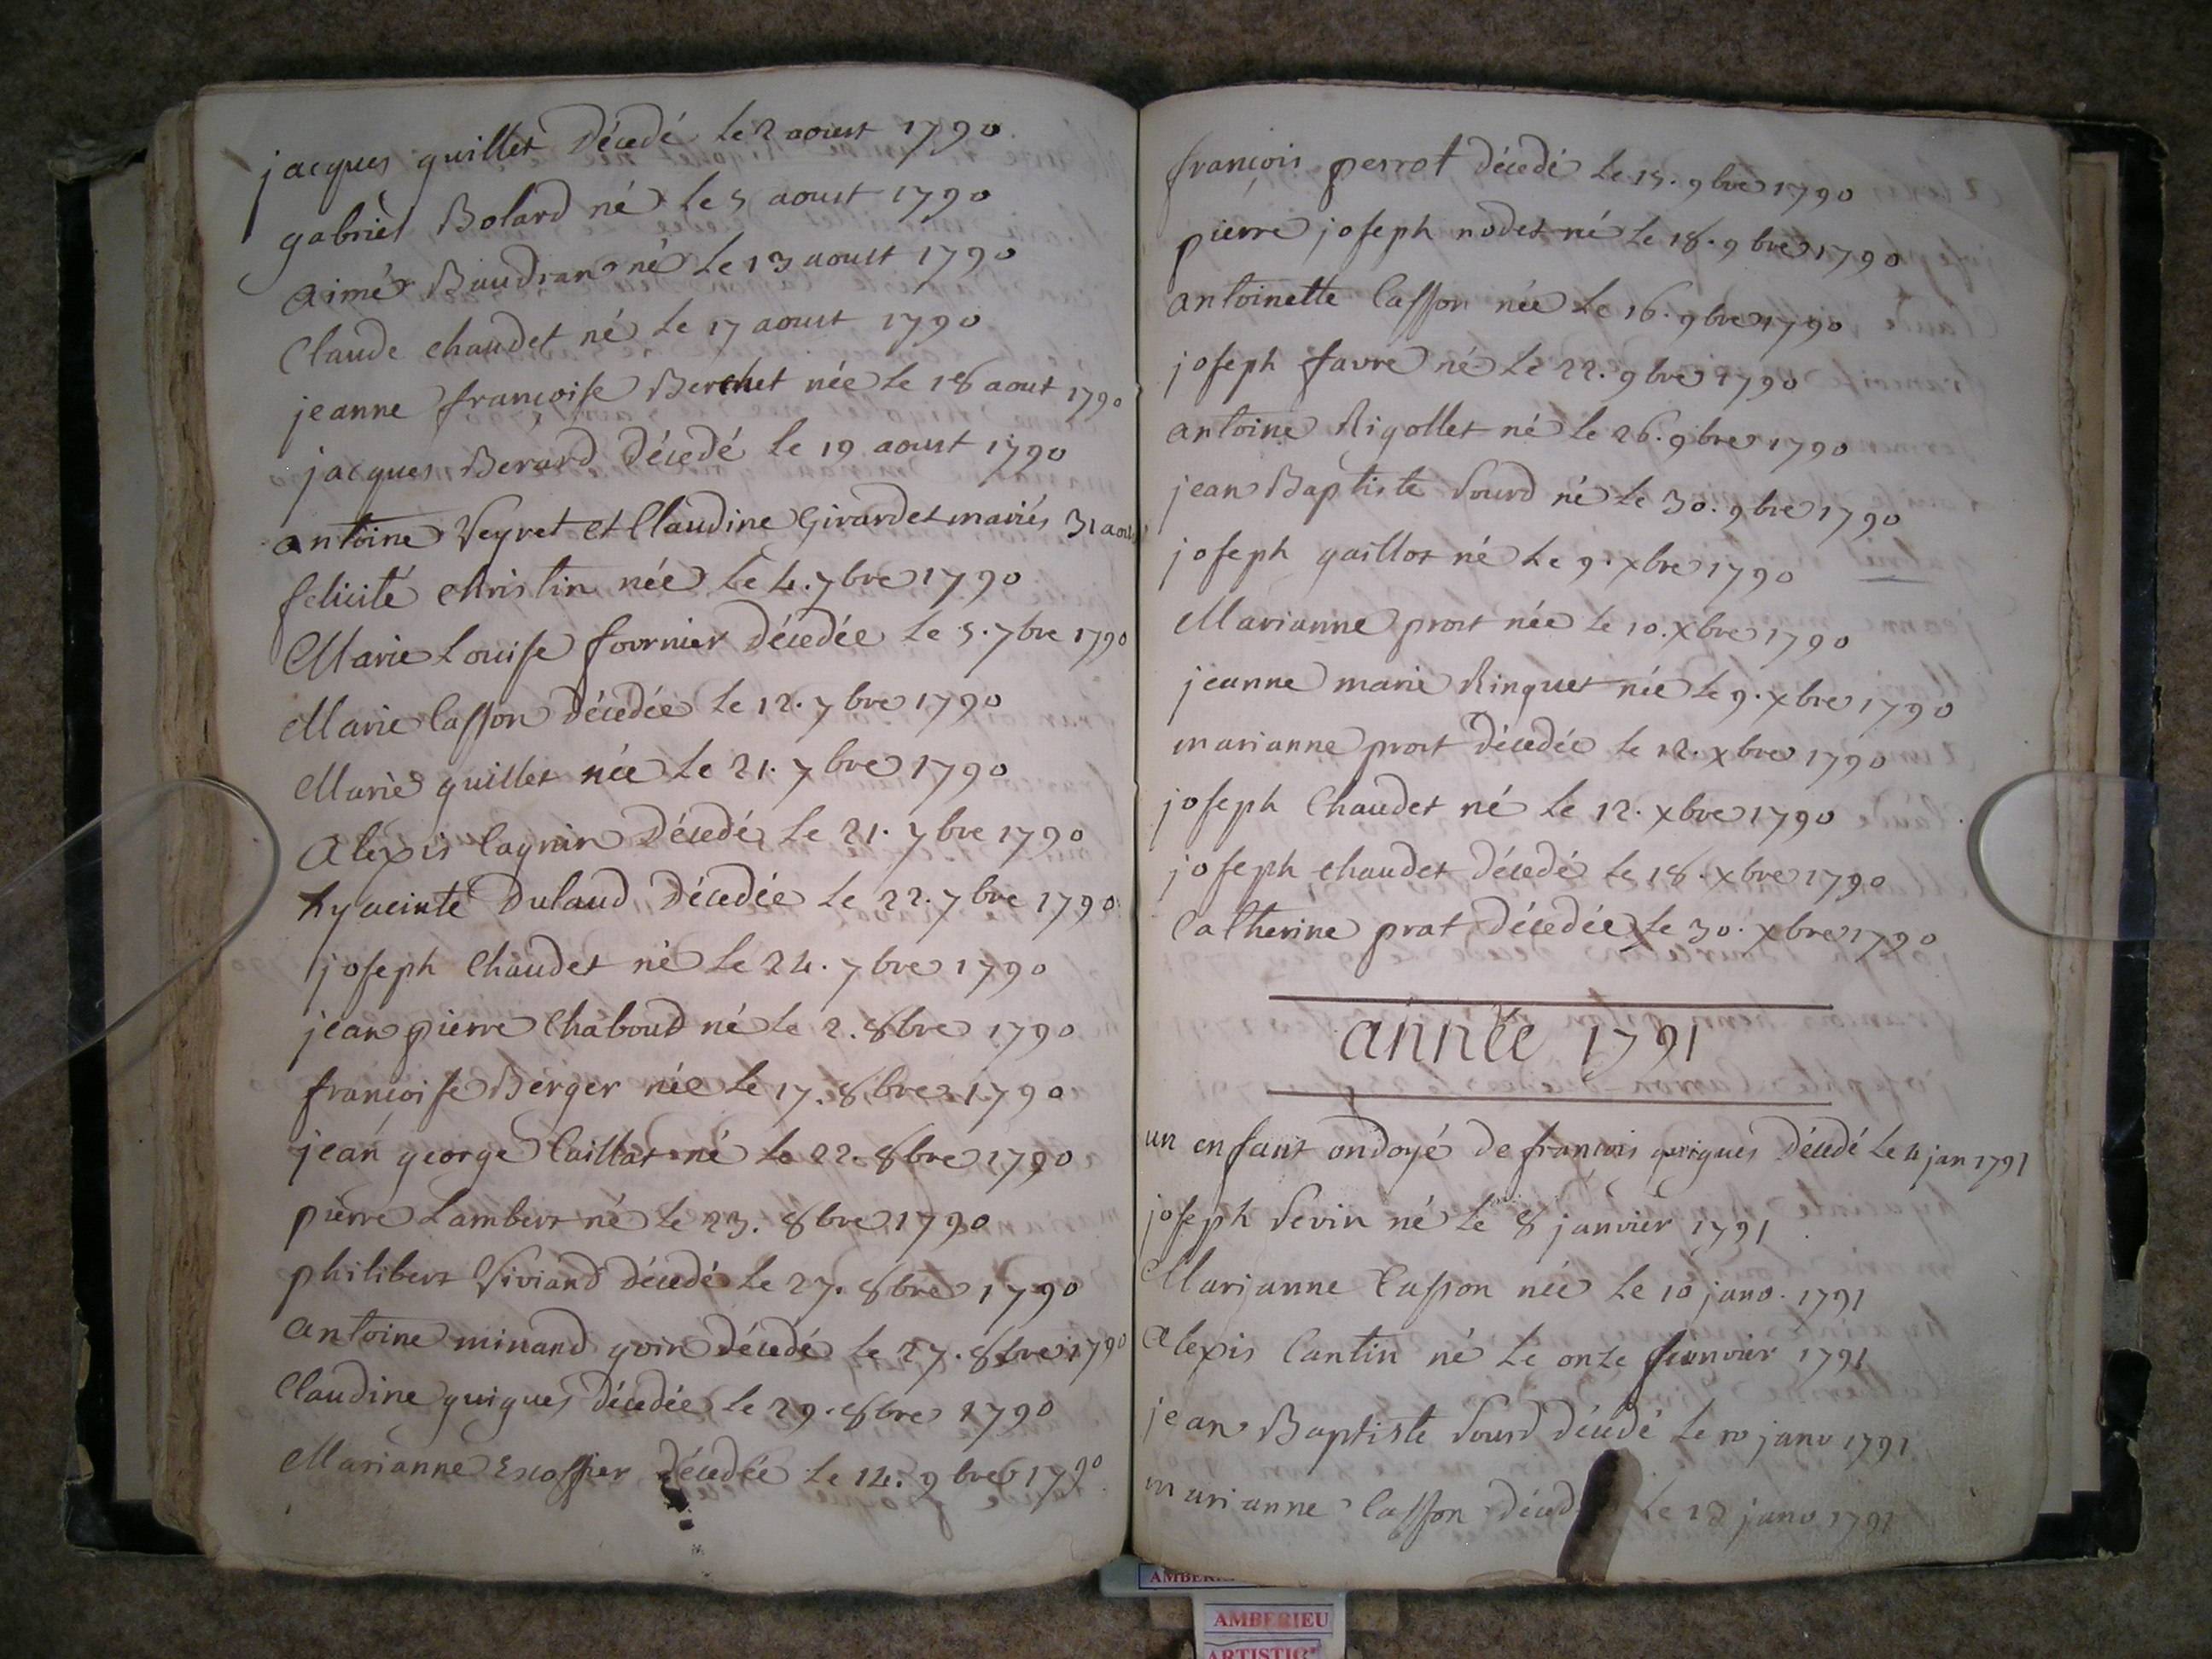 jacques guillet Décedé le 2 aoust 1790
gabriel Bolard né le 5 aoust 1790
aimé Baudran né le 13 aoust 1790
Claude chaudet né le 17 aoust 1790
jeanne françoise Berchet née le 18 aout 1790
jacques Berard Décedé le 19 aoust 1790
antoine Veyret et Claudine Girardet mariés 31 aout
felicité christin née le 4. 7bre 1790
Marie Louise fournier Décedée le 5. 7bre 1790
Marie Casson Décedée le 12. 7bre 1790
Marie guillet née le 21. 7bre 1790
Alexis Cagnin Décedé le 21. 7bre 1790
hyacinte Dulaud Décedée le 22. 7bre 1790
joseph Chaudet né le 24. 7bre 1790
jean pierre Chaboud né le 2. 8bre 1790
françoise Berger née le 17. 8bre 1790
jean george Caillat né le 22. 8bre 1790
pierre Lambert né le 23. 8bre 1790
philibert Viviand décedé le 27. 8bre 1790
antoine minand goin décedé le 27. 8bre 1790
Claudine guigues décedée le 29. 8bre 1790
Marianne Escoffier décedée le 14. 9bre 1790
françois perrot décedé le 15. 9bre 1790
pierre joseph nodet né le 18. 9bre 1790
antoinette Casson née le 16. 9bre 1790
joseph favre né le 22. 9bre 1790
antoine Rigollet né le 26. 9bre 1790
jean Baptiste Sourd né le 30. 9bre 1790
joseph gaillot né le 9. xbre 1790
Marianne prost née le 10. xbre 1790
jeanne marie Ringuet née le 9. xbre 1790
marianne prost décedée le 12. xbre 1790
joseph Chaudet né le 12. xbre 1790
joseph chaudet décedé le 18. xbre 1790
Catherine prat décedée le 30. xbre 1790
année 1791
un enfant ondoyé de françois guigues Décedé le 4 jan 1791
joseph Sevin né le 8 janvier 1791
Marianne Casson née le 10 janv. 1791
Alexis Cantin né le onze janvier 1791
jean Baptiste Sourd décedé le 10 janv 1791
marianne Casson déced le 12 janv 1791
AMBERIEU
ARTISTIC